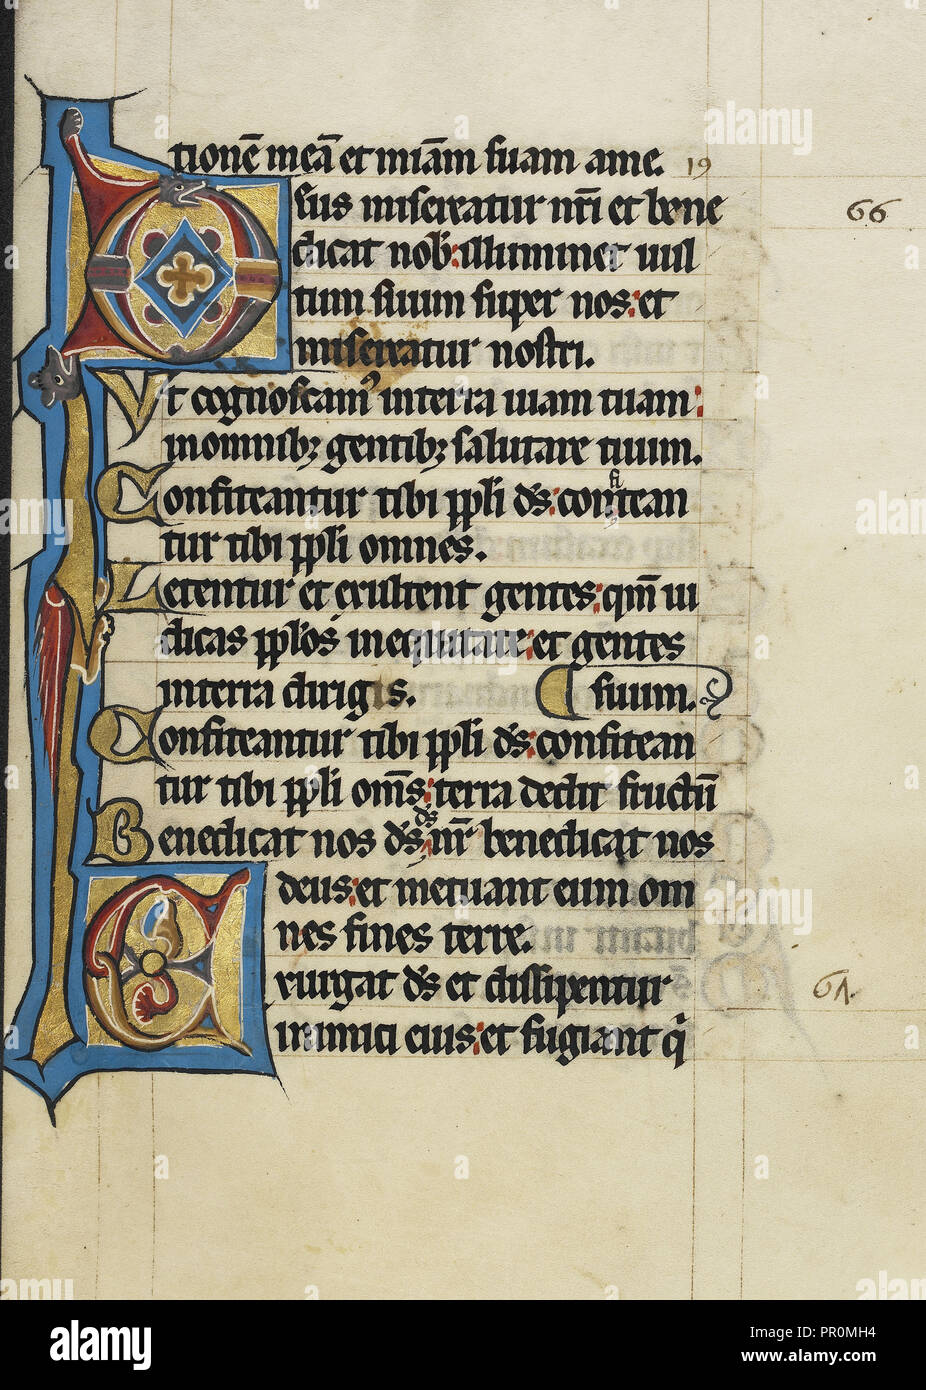 tionē meā et miā̄m suam ame. 19
Dus misereatur nr̄i et bene
dicat nob̄: illuminet uul
tum suum super nos: et
misereatur nostri.
Vt cognoscamꝰ interra uiam tuam:
inomnibꝫ gentibꝫ salutare tuum.
Confiteantur tibi ppl̄i ds̄: confitean
tur tibi ppl̄i omnes.
Letentur et exultent gentes: qm̄ iu
dicas ppl̄os inequitate: et gentes
interra dirigis. suum.
Confiteantur tibi ppl̄i ds̄: confitean
tur tibi ppl̄i om̄s: terra dedit fructū
Benedicat nos ds̄ ds̄ nr̄ benedicat nos
deus: et metuant eum om
nes fines terre.
Exurgat ds̄ et dissipentur
inimici eius: et fugiant q̄
66
67.
alamy
Image ID: PR0MH4
www.alamy.com